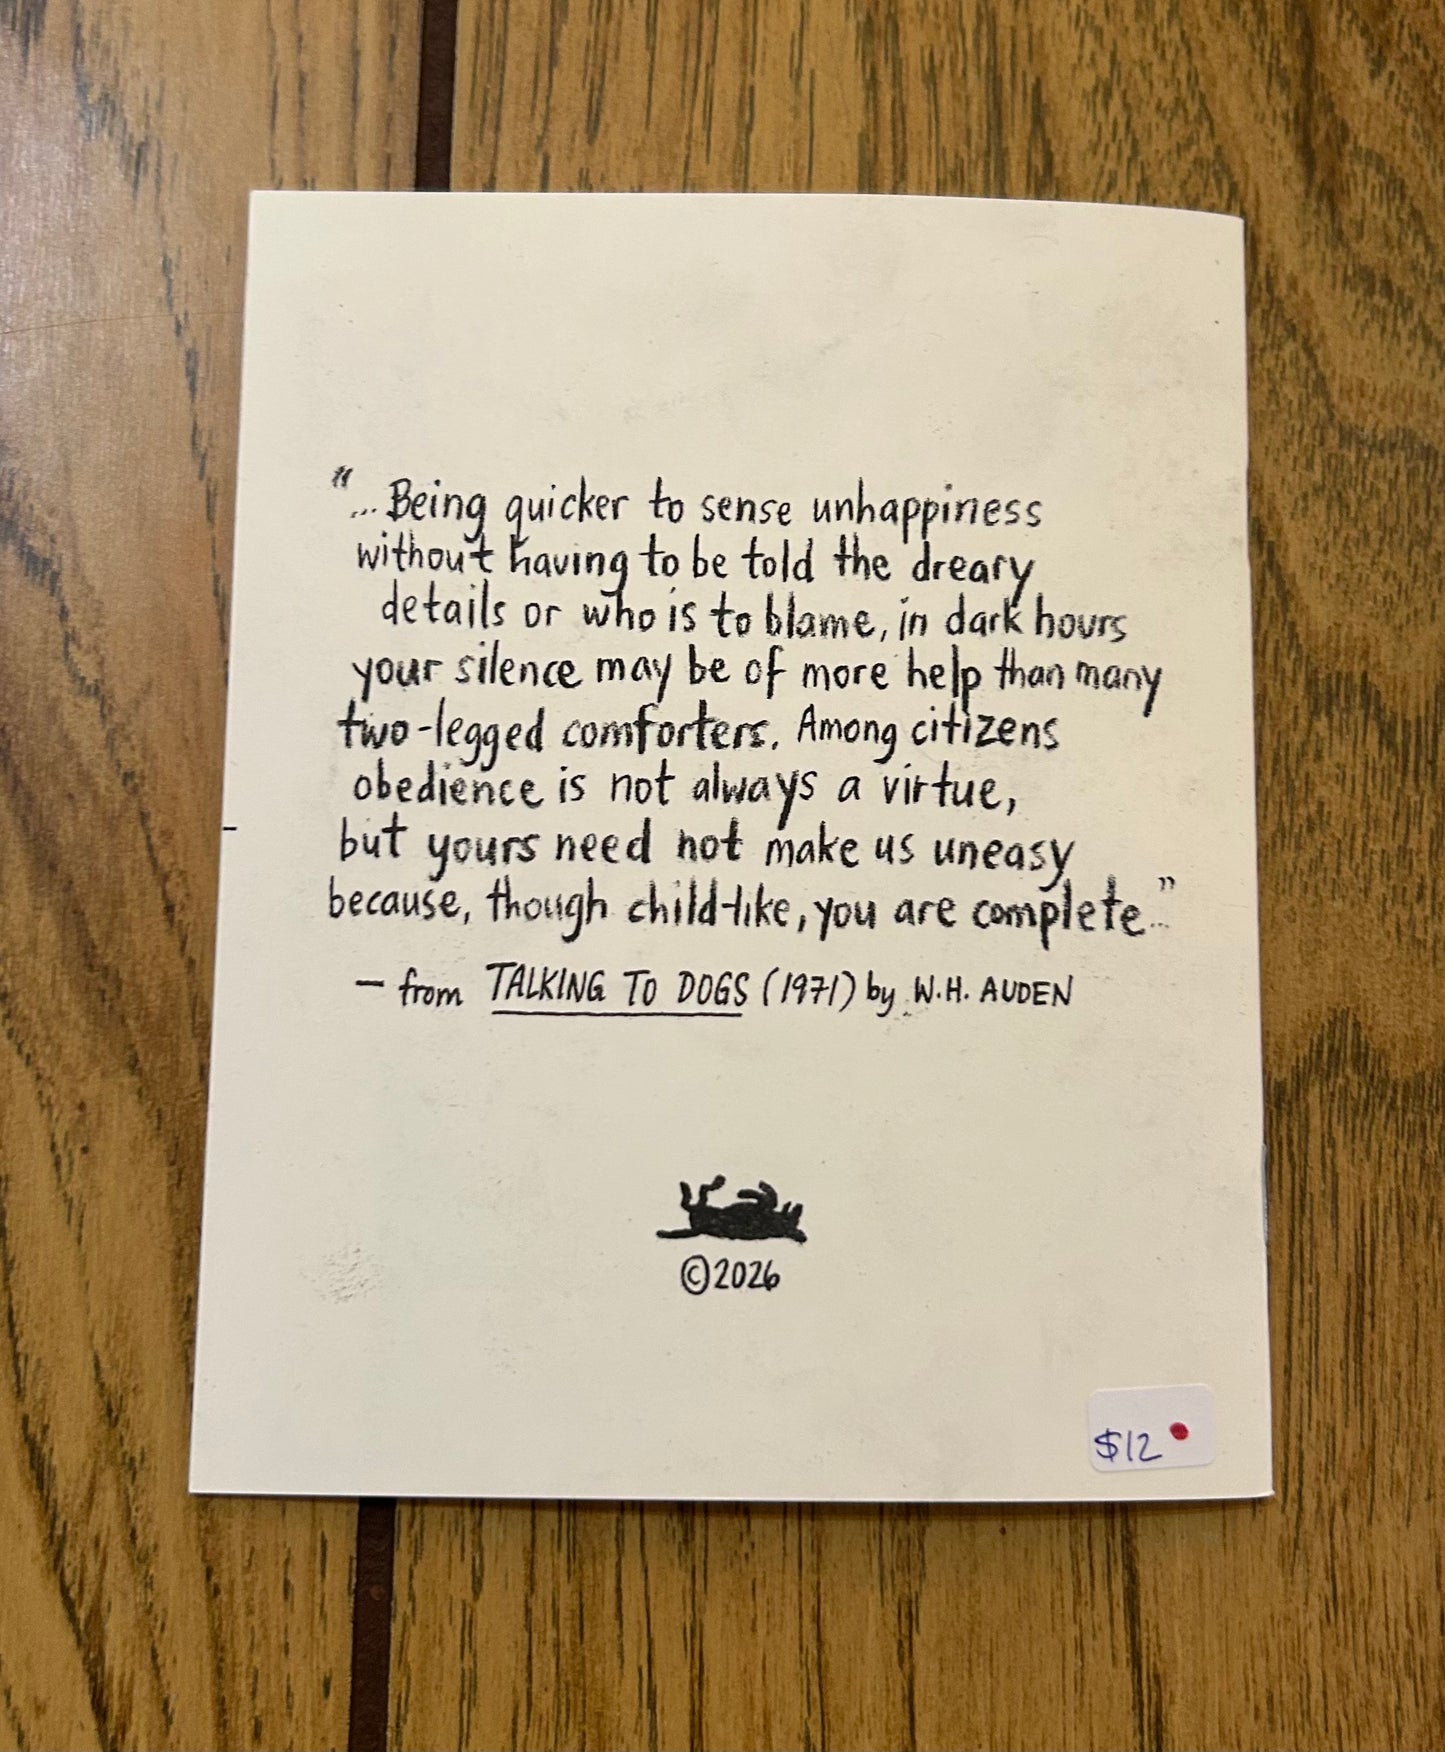 "...Being quicker to sense unhappiness
without having to be told the dreary
details or who is to blame, in dark hours
your silence may be of more help than many
two-legged comforters. Among citizens
obedience is not always a virtue,
but yours need not make us uneasy
because, though child-like, you are complete..."
— from TALKING TO DOGS (1971) by W.H. AUDEN
©2026
$12